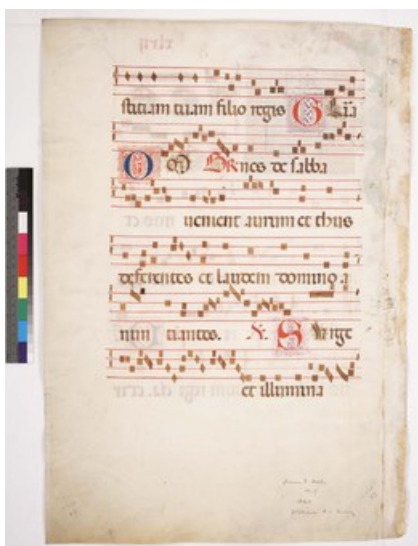 stitiam tuam filio regis Gl'ia
O Omnes de sabba
uenient aurum et thus
deferentes et laudem domino a
nun tiantes. V. Surge
et illumina